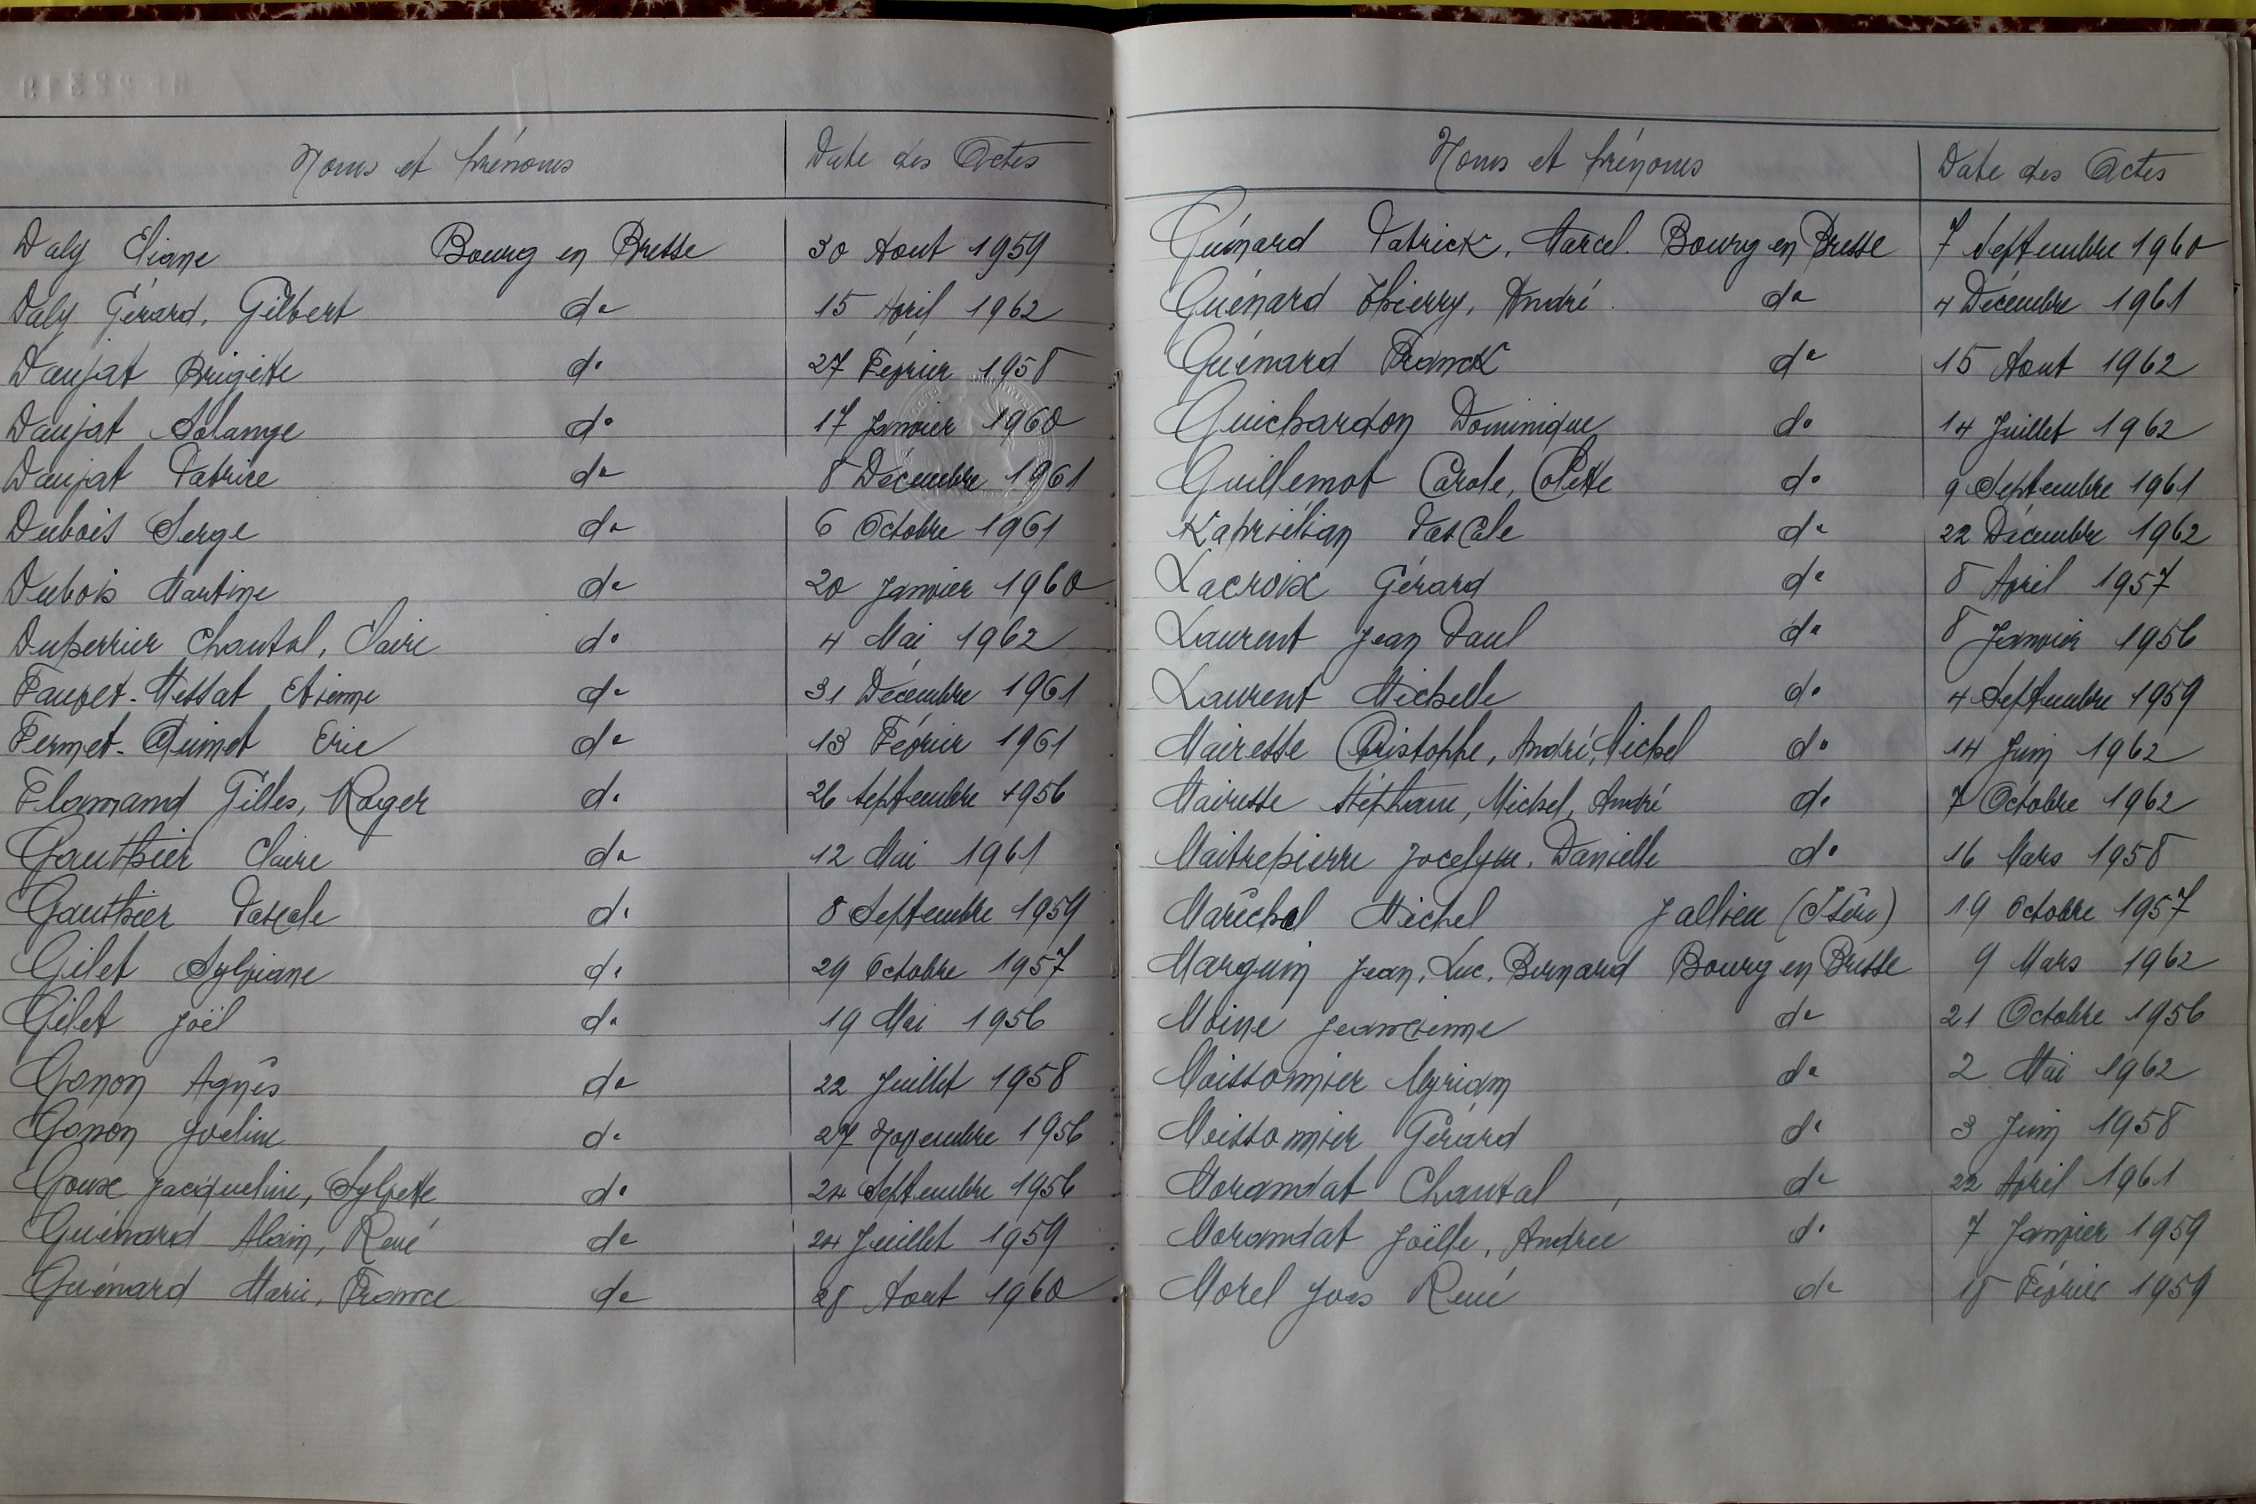 Noms et prénoms Date des Actes
Daly Eliane Bourg en Bresse 30 Aout 1959
Daly Gérard, Gilbert do 15 Avril 1962
Daujat Brigitte do 27 Février 1958
Daujat Solange do 17 Janvier 1960
Daujat Patrice do 8 Décembre 1961
Dubois Serge do 6 Octobre 1961
Dubois Martine do 20 Janvier 1960
Duperrier Chantal, Claire do 4 Mai 1962
Fauvet-Messat Etienne do 31 Décembre 1961
Fermet-Quinet Eric do 13 Février 1961
Flamand Gilles, Roger do 26 Septembre 1956
Gauthier Claire do 12 Mai 1961
Gauthier Pascale do 8 Septembre 1959
Gilet Sylviane do 29 Octobre 1957
Gilet Joël do 19 Mai 1956
Gonon Agnès do 22 Juillet 1958
Gonon Yveline do 27 Novembre 1956
Goux Jacqueline, Sylvette do 24 Septembre 1956
Guénard Alain, René do 24 Juillet 1959
Guénard Marie, France do 28 Aout 1960
Noms et prénoms Date des Actes
Guénard Patrick, Marcel. Bourg en Bresse 7 Septembre 1960
Guénard Thierry, André do 4 Décembre 1961
Guénard Franck do 15 Aout 1962
Guichardon Dominique do 14 Juillet 1962
Guillemot Carole, Colette do 9 Septembre 1961
Kaprièlian Pascale do 22 Décembre 1962
Lacroix Gérard do 8 Avril 1957
Laurent Jean Paul do 8 Janvier 1956
Laurent Michelle do 4 Septembre 1959
Mairesse Christophe, André, Michel do 14 Juin 1962
Mairesse Stéphane, Michel, André do 7 Octobre 1962
Maitrepierre Jocelyne, Danielle do 16 Mars 1958
Maréchal Michel Jallieu (Isère) 19 Octobre 1957
Marguin Jean, Luc, Bernard Bourg en Bresse 9 Mars 1962
Moine Jeancienne do 21 Octobre 1956
Moissonnier Myriam do 2 Mai 1962
Moissonnier Gérard do 3 Juin 1958
Morandat Chantal, do 22 Avril 1961
Morandat Joëlle, Andrée do 7 Janvier 1959
Morel Yves René do Février 1959